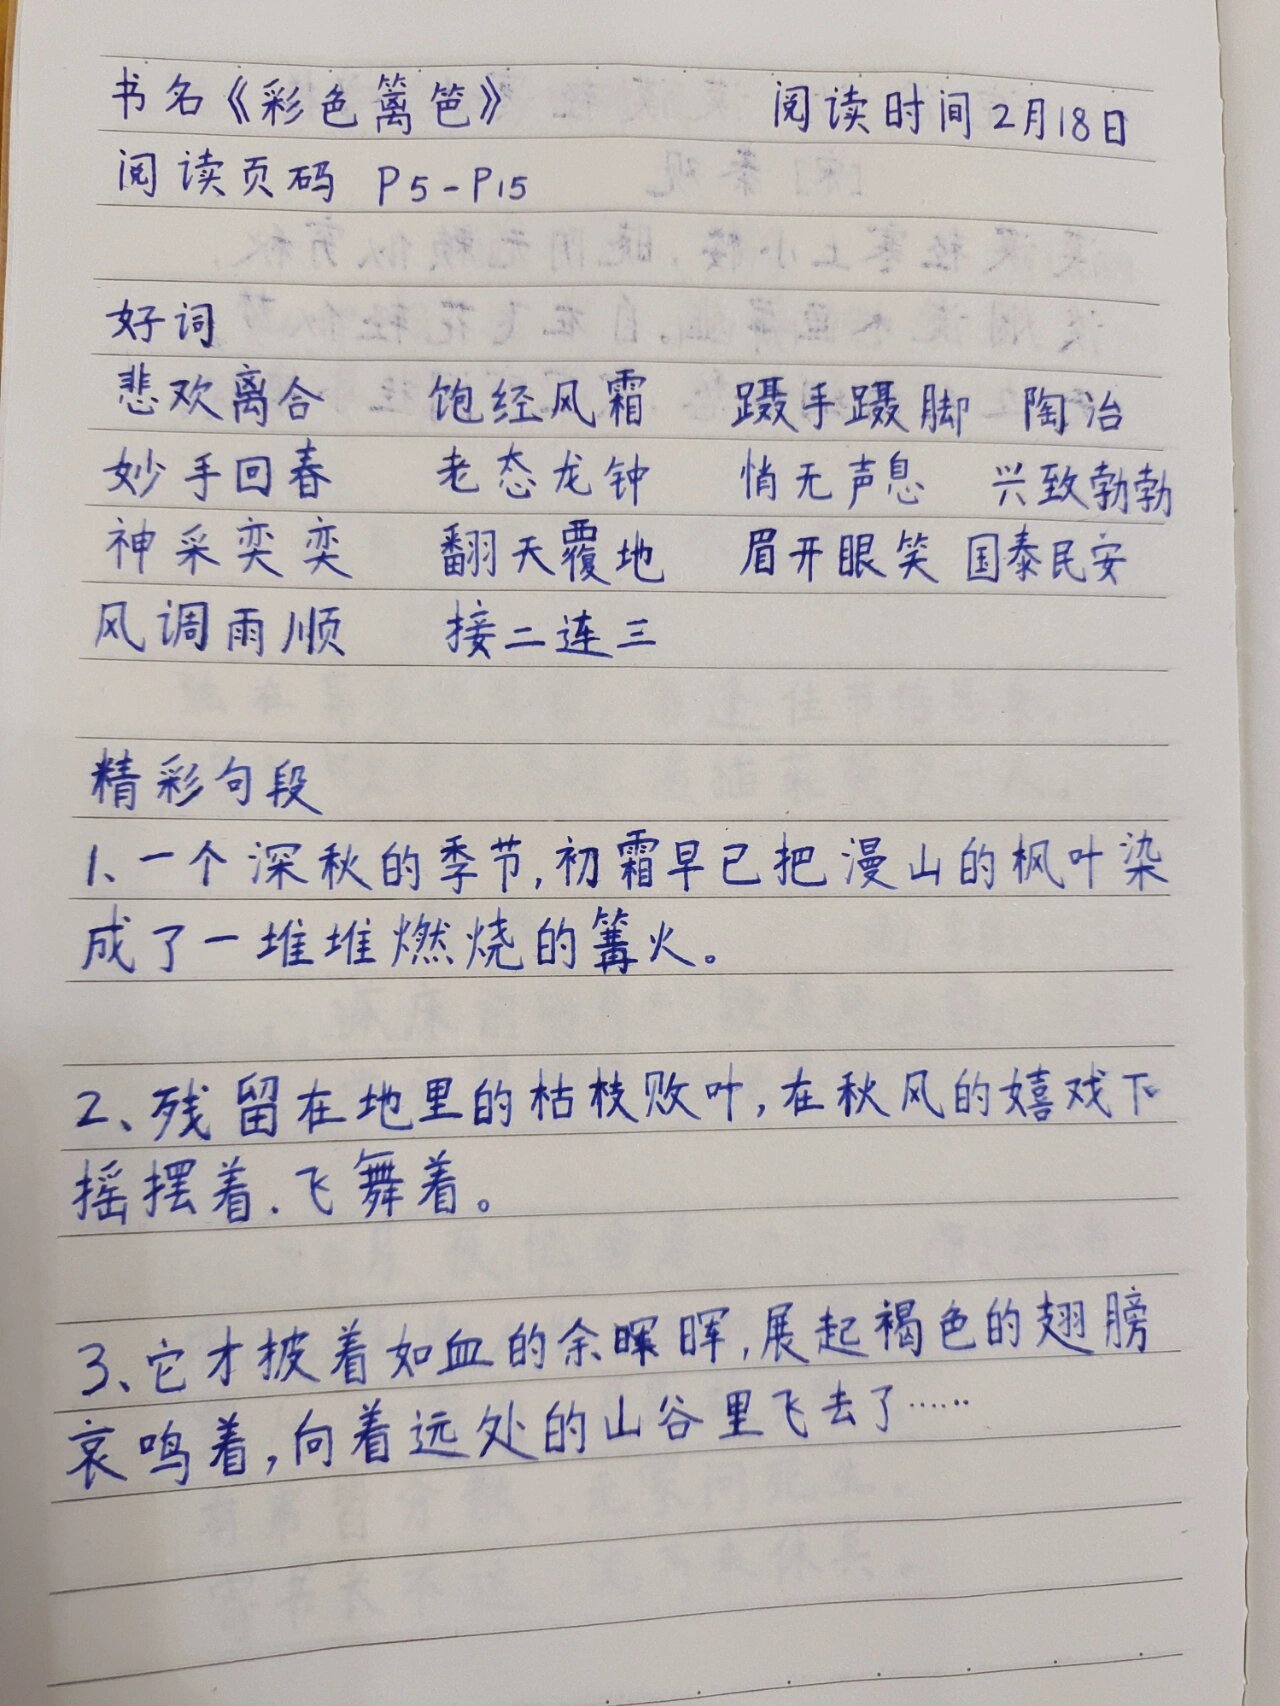 书名《彩色篱笆》 阅读时间2月18日
阅读页码 P5-P15
好词
悲欢离合 饱经风霜 蹑手蹑脚 陶冶
妙手回春 老态龙钟 悄无声息 兴致勃勃
神采奕奕 翻天覆地 眉开眼笑 国泰民安
风调雨顺 接二连三
精彩句段
1、一个深秋的季节,初霜早已把漫山的枫叶染
成了一堆堆燃烧的篝火。
2、残留在地里的枯枝败叶,在秋风的嬉戏下
摇摆着.飞舞着。
3、它才披着如血的余晖晖,展起褐色的翅膀
哀鸣着,向着远处的山谷里飞去了……